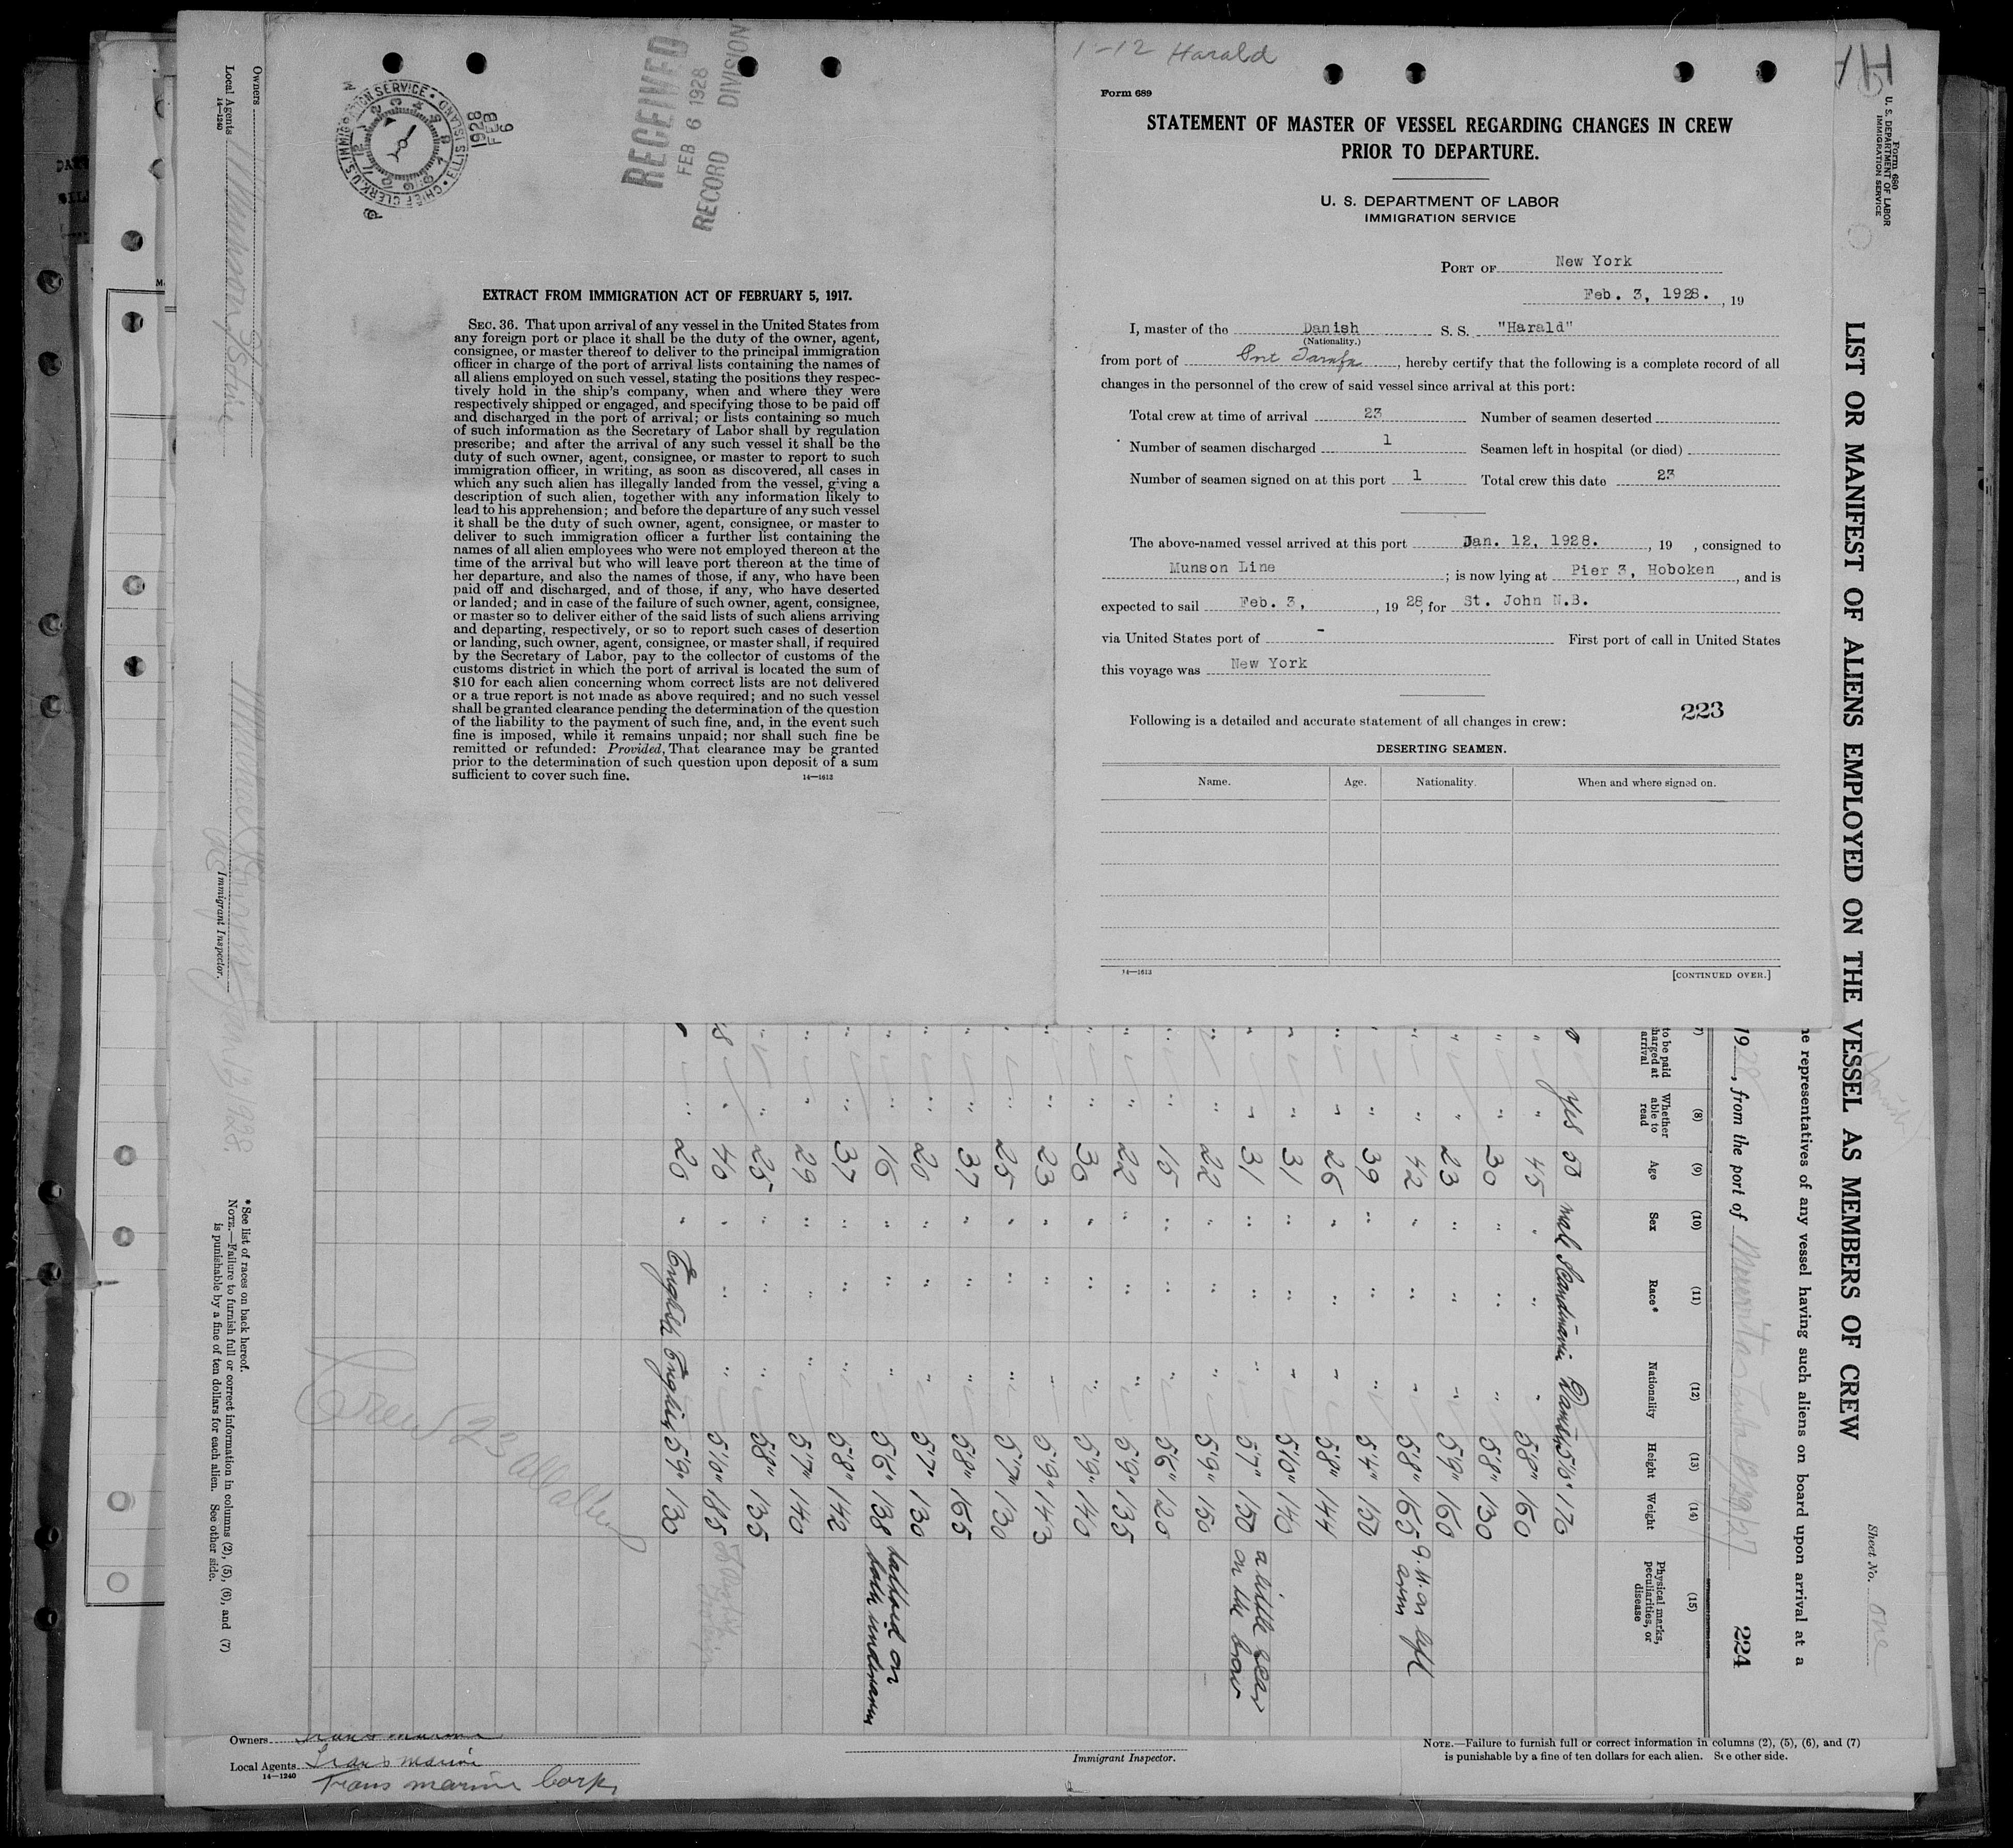 1-12 Harald
Form 689
STATEMENT OF MASTER OF VESSEL REGARDING CHANGES IN CREW
PRIOR TO DEPARTURE.
U. S. DEPARTMENT OF LABOR
IMMIGRATION SERVICE
PORT OF New York
Feb. 3, 1928. , 19
I, master of the Danish S. S. "Harald"
(Nationality.)
from port of Port Tarafa, hereby certify that the following is a complete record of all
changes in the personnel of the crew of said vessel since arrival at this port:
Total crew at time of arrival 23 Number of seamen deserted
Number of seamen discharged 1 Seamen left in hospital (or died)
Number of seamen signed on at this port 1 Total crew this date 23
The above-named vessel arrived at this port Jan. 12, 1928. , 19 , consigned to
Munson Line ; is now lying at Pier 3, Hoboken , and is
expected to sail Feb. 3, , 19 28, for St. John N.B.
via United States port of - First port of call in United States
this voyage was New York
223
Following is a detailed and accurate statement of all changes in crew:
DESERTING SEAMEN.
Name. Age. Nationality. When and where signed on.
14—1613 [CONTINUED OVER.]
U.S. IMMIGRATION SERVICE • ELLIS ISLAND • CHIEF CLERK
1928 FEB 6
RECEIVED
FEB 6 1928
RECORD DIVISION
EXTRACT FROM IMMIGRATION ACT OF FEBRUARY 5, 1917.
SEC. 36. That upon arrival of any vessel in the United States from
any foreign port or place it shall be the duty of the owner, agent,
consignee, or master thereof to deliver to the principal immigration
officer in charge of the port of arrival lists containing the names of
all aliens employed on such vessel, stating the positions they respec-
tively hold in the ship's company, when and where they were
respectively shipped or engaged, and specifying those to be paid off
and discharged in the port of arrival; or lists containing so much
of such information as the Secretary of Labor shall by regulation
prescribe; and after the arrival of any such vessel it shall be the
duty of such owner, agent, consignee, or master to report to such
immigration officer, in writing, as soon as discovered, all cases in
which any such alien has illegally landed from the vessel, giving a
description of such alien, together with any information likely to
lead to his apprehension; and before the departure of any such vessel
it shall be the duty of such owner, agent, consignee, or master to
deliver to such immigration officer a further list containing the
names of all alien employees who were not employed thereon at the
time of the arrival but who will leave port thereon at the time of
her departure, and also the names of those, if any, who have been
paid off and discharged, and of those, if any, who have deserted
or landed; and in case of the failure of such owner, agent, consignee,
or master so to deliver either of the said lists of such aliens arriving
and departing, respectively, or so to report such cases of desertion
or landing, such owner, agent, consignee, or master shall, if required
by the Secretary of Labor, pay to the collector of customs of the
customs district in which the port of arrival is located the sum of
$10 for each alien concerning whom correct lists are not delivered
or a true report is not made as above required; and no such vessel
shall be granted clearance pending the determination of the question
of the liability to the payment of such fine, and, in the event such
fine is imposed, while it remains unpaid; nor shall such fine be
remitted or refunded: Provided, That clearance may be granted
prior to the determination of such question upon deposit of a sum
sufficient to cover such fine. 14—1613
Form 680
U. S. DEPARTMENT OF LABOR
IMMIGRATION SERVICE
LIST OR MANIFEST OF ALIENS EMPLOYED ON THE VESSEL AS MEMBERS OF CREW
Sheet No. one
he representatives of any vessel having such aliens on board upon arrival at a
1928, from the port of Cuba 12/29/27 224
7) (8) (9) (10) (11) (12) (13) (14) (15)
to be paid
harged at
arrival
Whether
able to
read
Age Sex Race* Nationality Height Weight
Physical marks,
peculiarities, or
disease
yes 50 male Scandinavia Danish 5'10" 170
" 45 " " " 5'8" 160
" 30 " " " 5'8" 130
" 23 " " " 5'9" 160
" 42 " " " 5'8" 165 G. H. on left
arm
" 39 " " " 5'4" 150
" 26 " " " 5'8" 144
" 31 " " " 5'10" 140
" 31 " " " 5'7" 150 a little scar
on the brow
" 22 " " " 5'9" 150
" 15 " " " 5'6" 120
" 22 " " " 5'9" 135
" 30 " " " 5'9" 140
" 23 " " " 5'9" 143
" 25 " " " 5'7" 130
" 37 " " " 5'8" 165
" 20 " " " 5'7" 130
" 16 " " " 5'6" 138 tattoed on
both underarms
" 37 " " " 5'8" 142
" 29 " " " 5'7" 140
" 25 " " " 5'8" 135
" 40 " " " 5'10" 185
" 20 " English English 5'9" 130
Crew 23 all
*See list of races on back hereof.
NOTE.—Failure to furnish full or correct information in columns (2), (5), (6), and (7)
is punishable by a fine of ten dollars for each alien. See other side.
Owners
Local Agents Munson S/S Line
14—1240
Immigrant Inspector.
Owners Trans marine
Local Agents Trans marine
14—1240
Trans marine Corp.
Immigrant Inspector.
NOTE.—Failure to furnish full or correct information in columns (2), (5), (6), and (7)
is punishable by a fine of ten dollars for each alien. See other side.